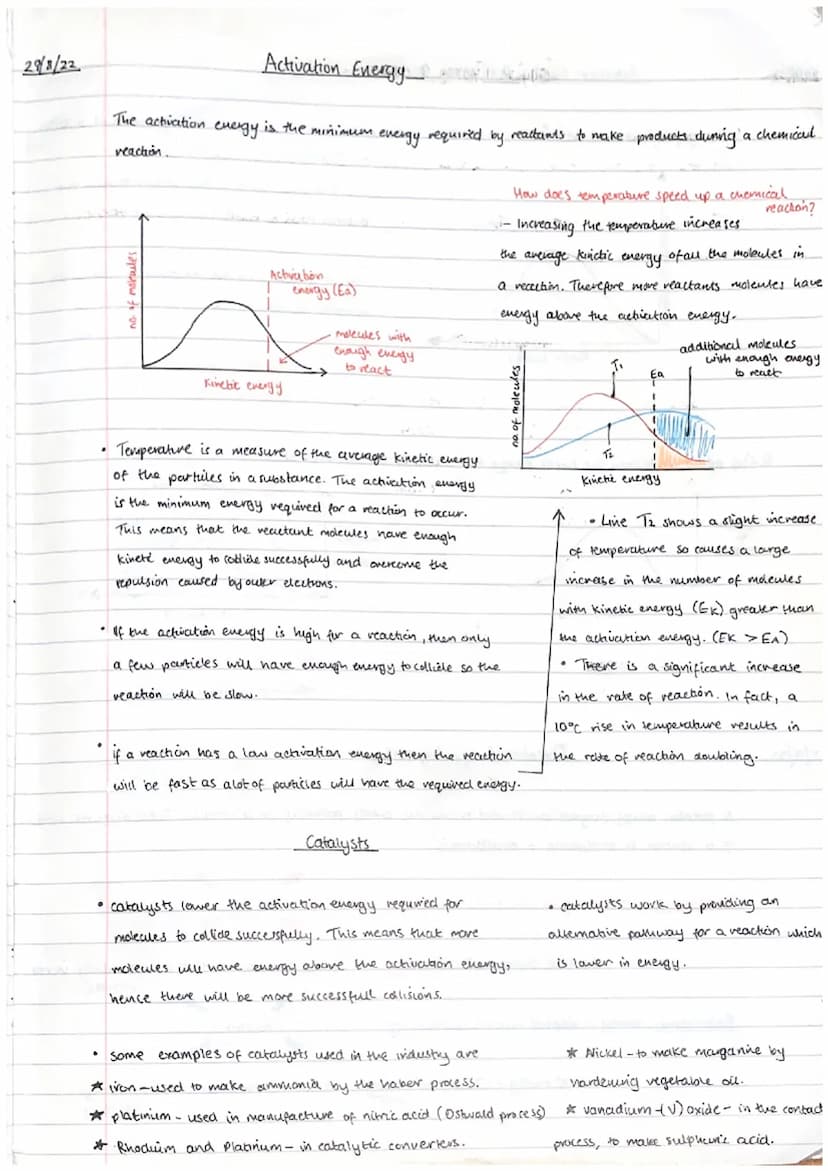 29/8/22
Activation Energy
The activation energy is the minimum energy required by reactants to make products during a chemical
reaction.
no. of molecules
Activation
energy (Ea)
molecules with
enough energy
to react
Kinetic energy
How does temperature speed up a chemical
reaction?
:- Increasing the temperature increases
the average kinetic energy of all the molecules in
a reaction. Therefore more reactants molecules have
energy above the activation energy.
additional molecules
with enough energy
to react
no. of molecules
T1
Ea
T2
Kinetic energy
• Temperature is a measure of the average kinetic energy
of the particles in a substance. The activation energy
is the minimum energy required for a reaction to occur.
This means that the reactant molecules have enough
kinetic energy to collide successfully and overcome the
repulsion caused by outer electrons.
• If the activation energy is high for a reaction, then only
a few particles will have enough energy to collide so the
reaction will be slow.
• if a reaction has a low activation energy then the reaction
will be fast as a lot of particles will have the required energy.
• Line T2 shows a slight increase
of temperature so causes a large
increase in the number of molecules
with kinetic energy (EK) greater than
the activation energy. (EK > EA)
• There is a significant increase
in the rate of reaction. In fact, a
10°C rise in temperature results in
the rate of reaction doubling.
Catalysts
• catalysts lower the activation energy required for
molecules to collide successfully. This means that more
molecules will have energy above the activation energy,
hence there will be more successfull collisions.
• catalysts work by providing an
alternative pathway for a reaction which
is lower in energy.
• some examples of catalysts used in the industry are
★ iron - used to make ammonia by the haber process.
★ platinium - used in manufacture of nitric acid (Ostwald process)
★ Rhodium and Platinium - in catalytic converters.
★ Nickel - to make margarine by
hardening vegetable oil.
★ vanadium-(V) oxide - in the contact
process, to make sulpheuric acid.